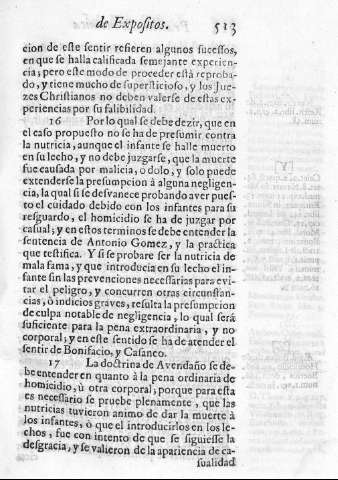 de Expositos. 513
cion de este sentir refieren algunos sucessos,
en que se halla calificada semejante experien-
cia; pero este modo de proceder està reproba-
do, y tiene mucho de supersticioso, y los Jue-
zes Christianos no deben valerse de estas ex-
periencias por su falibilidad.
16 Por lo qual se debe dezir, que en
el caso propuesto no se ha de presumir contra
la nutricia, aunque el infante se halle muerto
en su lecho, y no debe juzgarse, que la muerte
fue causada por malicia, o dolo, y solo puede
extenderse la presumpcion à alguna negligen-
cia, la qual si se desvanece probando aver pues-
to el cuidado debido con los infantes para su
resguardo, el homicidio se ha de juzgar por
casual; y en estos terminos se debe entender la
sentencia de Antonio Gomez, y la practica
que testifica. Y si se probare ser la nutricia de
mala fama, y que introducia en su lecho el in-
fante sin las prevenciones necessarias para evi-
tar el peligro, y concurren otras circunstan-
cias, ò indicios graves, resulta la presumpcion
de culpa notable de negligencia, lo qual serà
suficiente para la pena extraordinaria, y no
corporal; y en este sentido se ha de atender el
sentir de Bonifacio, y Casaneo.
17 La doctrina de Avendaño se de-
be entender en quanto à la pena ordinaria de
homicidio, ù otra corporal; porque para esta
es necessario se pruebe plenamente, que las
nutricias tuvieron animo de dar la muerte à
los infantes, ò que el introducirlos en los le-
chos, fue con intento de que se siguiesse la
desgracia, y se valieron de la apariencia de ca-
sualidad